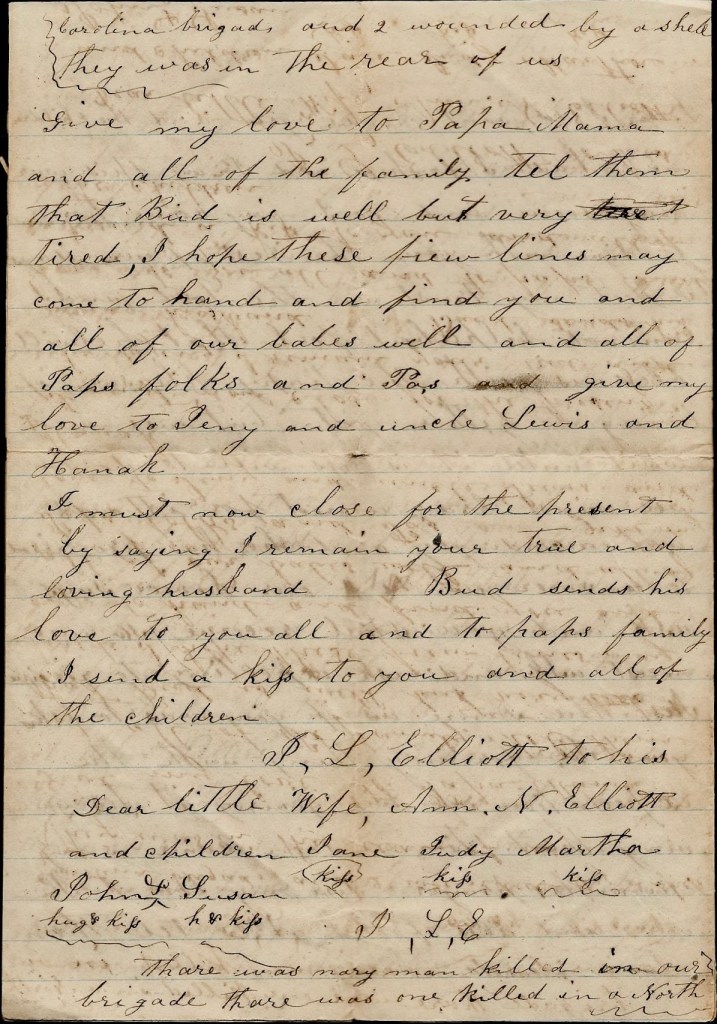 Carolina brigad, and 2 wounded by a shell
they was in the rear of us
Give my love to Papa Mama
and all of the family tel them
that Bud is well but very
tired, I hope these fiew lines may
come to hand and find you and
all of our babes well and all of
Paps folks and Pa,s and give my
love to Jeny and uncle Lewis and
Hanah
I must now close for the present
by saying I remain your true and
loving husband Bud sends his
love to you all and to paps family
I send a kiss to you and all of
the children
J, L, Elliott to his
Dear little Wife, Ann. N. Elliott
and children Jane Judy Martha
kiss kiss kiss
John L Susan
hug & kiss h & kiss J, L, E
thare was nary man killed in our
brigade thare was one killed in a North